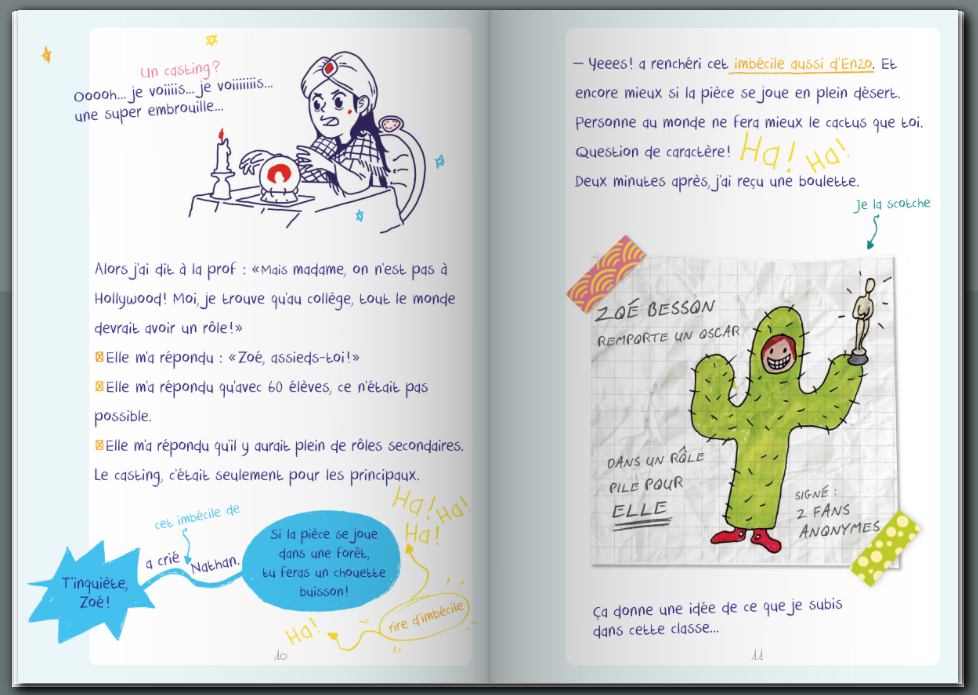 Un casting?
Ooooh... je voiiiis... je voiiiiiiis...
une super embrouille...
Alors j'ai dit à la prof : «Mais madame, on n'est pas à
Hollywood! Moi, je trouve qu'au collège, tout le monde
devrait avoir un rôle!»
Elle m'a répondu : «Zoé, assieds-toi!»
Elle m'a répondu qu'avec 60 élèves, ce n'était pas
possible.
Elle m'a répondu qu'il y aurait plein de rôles secondaires.
Le casting, c'était seulement pour les principaux.
T'inquiète,
Zoé!
cet imbécile de
a crié Nathan.
Si la pièce se joue
dans une forêt,
tu feras un chouette
buisson!
Ha! Ha!
Ha!
rire d'imbécile
Ha!
10
– Yeees! a renchéri cet imbécile aussi d'Enzo. Et
encore mieux si la pièce se joue en plein désert.
Personne au monde ne fera mieux le cactus que toi.
Question de caractère! Ha! Ha!
Deux minutes après, j'ai reçu une boulette.
je la scotche
ZOÉ BESSON
REMPORTE UN OSCAR
DANS UN RÔLE
PILE POUR
ELLE
SIGNÉ :
2 FANS
ANONYMES
Ça donne une idée de ce que je subis
dans cette classe...
11